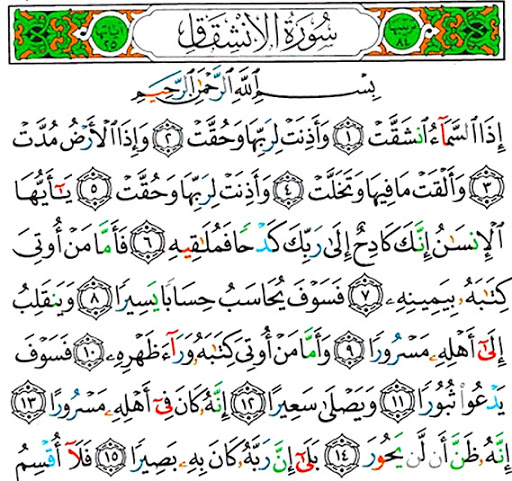 ترتيبها ٨٤ سُورَةُ الانشِقَاقِ آياتها ٢٥
بِسْمِ ٱللَّهِ ٱلرَّحْمَٰنِ ٱلرَّحِيمِ
إِذَا ٱلسَّمَآءُ ٱنشَقَّتْ ١ وَأَذِنَتْ لِرَبِّهَا وَحُقَّتْ ٢ وَإِذَا ٱلْأَرْضُ مُدَّتْ
٣ وَأَلْقَتْ مَا فِيهَا وَتَخَلَّتْ ٤ وَأَذِنَتْ لِرَبِّهَا وَحُقَّتْ ٥ يَٰٓأَيُّهَا
ٱلْإِنسَٰنُ إِنَّكَ كَادِحٌ إِلَىٰ رَبِّكَ كَدْحًا فَمُلَٰقِيهِ ٦ فَأَمَّا مَنْ أُوتِىَ
كِتَٰبَهُۥ بِيَمِينِهِۦ ٧ فَسَوْفَ يُحَاسَبُ حِسَابًا يَسِيرًا ٨ وَيَنقَلِبُ
إِلَىٰٓ أَهْلِهِۦ مَسْرُورًا ٩ وَأَمَّا مَنْ أُوتِىَ كِتَٰبَهُۥ وَرَآءَ ظَهْرِهِۦ ١٠ فَسَوْفَ
يَدْعُوا۟ ثُبُورًا ١١ وَيَصْلَىٰ سَعِيرًا ١٢ إِنَّهُۥ كَانَ فِىٓ أَهْلِهِۦ مَسْرُورًا ١٣
إِنَّهُۥ ظَنَّ أَن لَّن يَحُورَ ١٤ بَلَىٰٓ إِنَّ رَبَّهُۥ كَانَ بِهِۦ بَصِيرًا ١٥ فَلَآ أُقْسِمُ